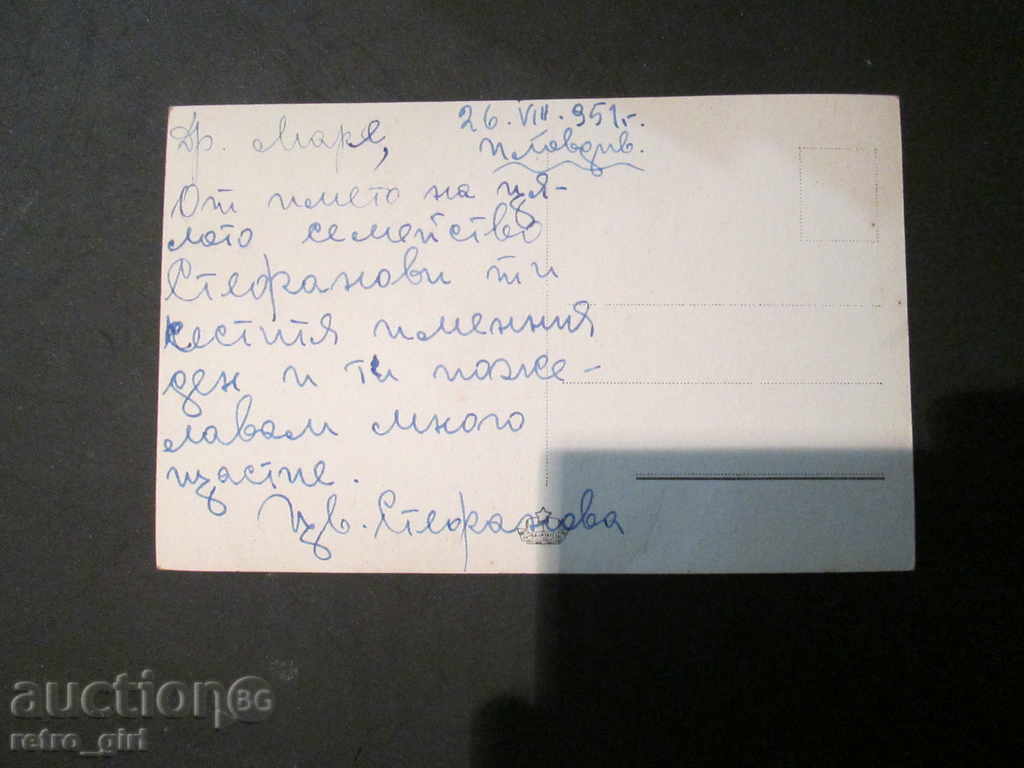 26. VIII. 951 г.
Пловдив.
Др. Маре,
От името на ця-
лото семейство
Стефанови ти
честитя именния
ден и ти поже-
лавам много
щастие.
Цв. Стефанова
auctionBG
retro_girl